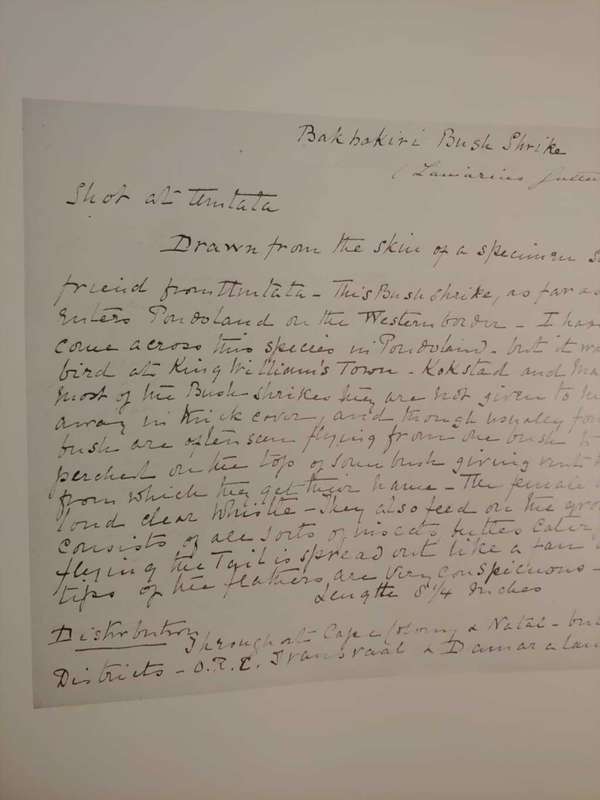 Bakbakiri Bush Shrike
(Laniarius
Shot at Umtata
Drawn from the skin of a specimen
friend from Umtata - This Bush Shrike, as far as
Enters Pondoland on the Western border - I have
come across this species in Pondoland - but it wa
bird at King William's Town - Kokstad and Ma
most of the Bush Shrikes they are not given to
away in thick cover, and though usually fou
bush are often seen flying from one bush t
perched on the top of some bush giving vent
from which they get their name - The female
loud clear whistle - They also feed on the gro
consists of all sorts of insects beetles
flying the Tail is spread out like a fan
tips of the feathers are very conspicuous -
Length 8 1/4 Inches
Distribution Throughout Cape Colony & Natal - bu
Districts - O.R.C. Transvaal & Damaralan